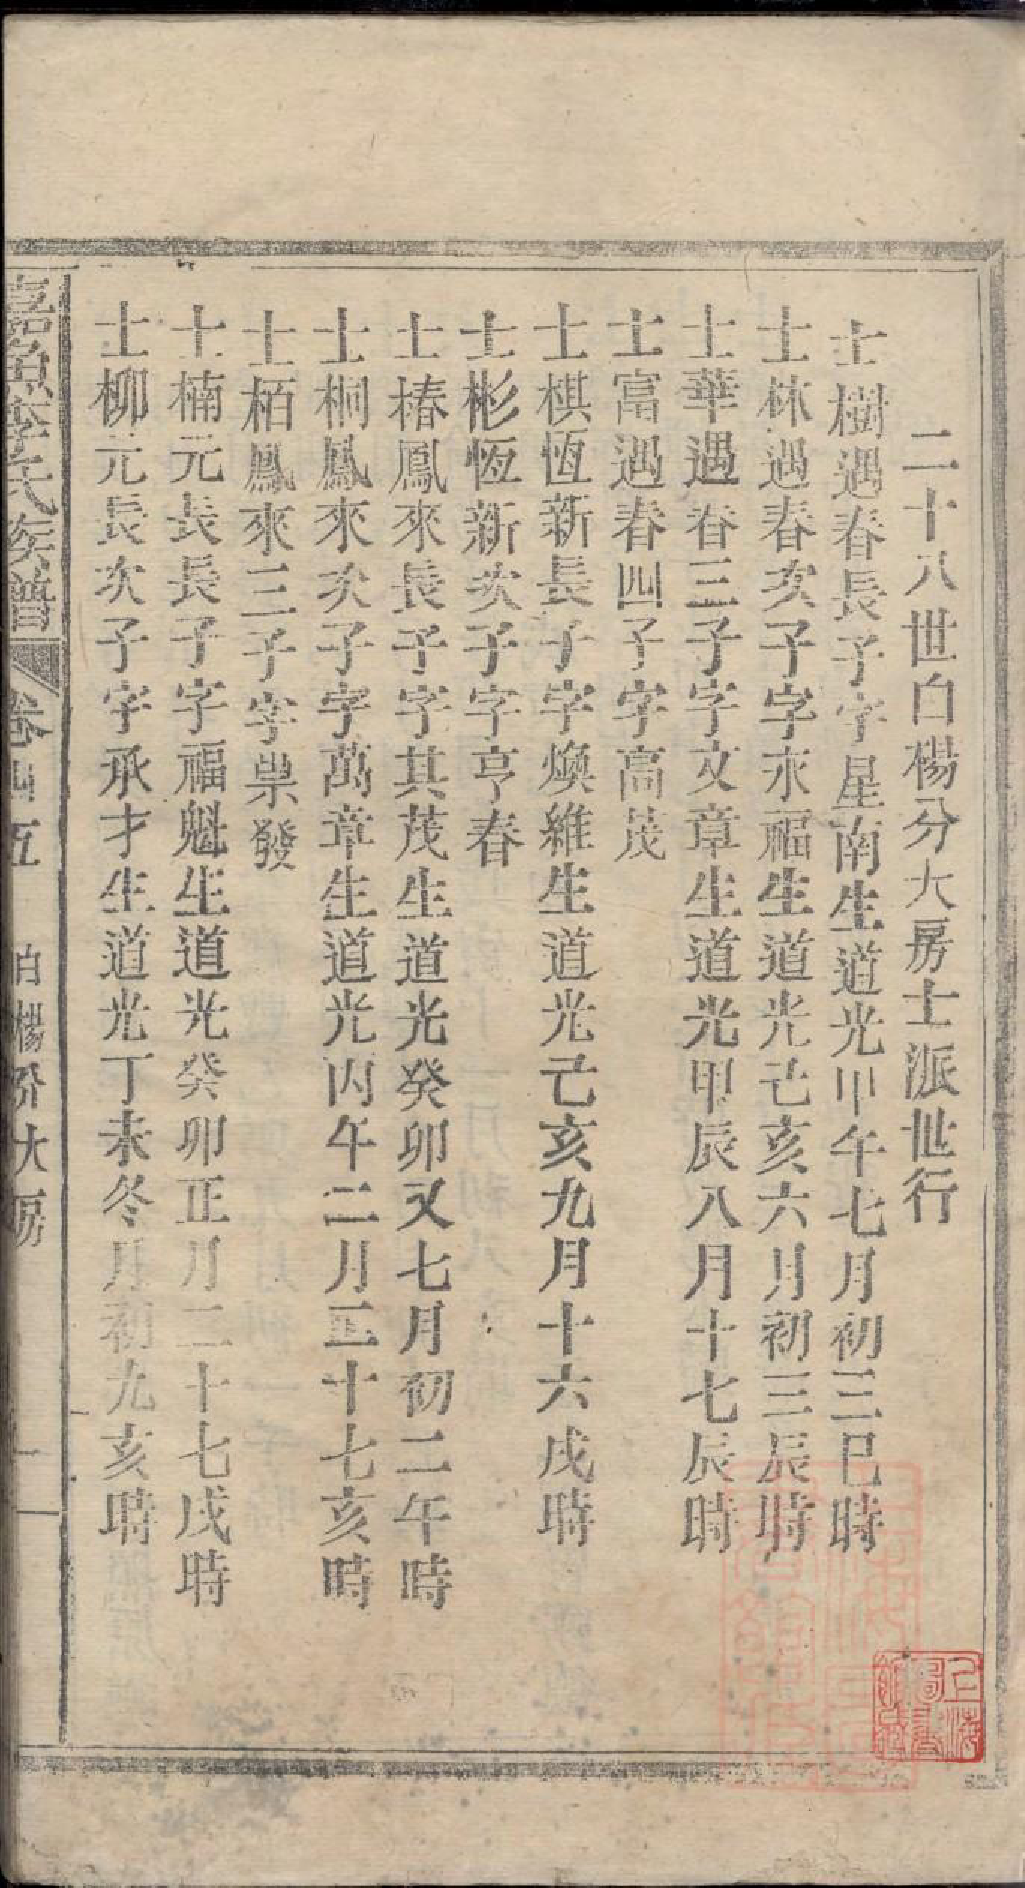 二十八世白楊分大房士派世行
士樹遇春長子字星南生道光甲午七月初三巳時
士林遇春次子字永福生道光己亥六月初三辰時
士華遇春三子字文章生道光甲辰八月十七辰時
士富遇春四子字高茂
士棋恆新長子字煥維生道光己亥九月十六戌時
士彬恆新次子字亨春
士椿鳳來長子字其茂生道光癸卯又七月初二午時
士桐鳳來次子字萬章生道光丙午二月二十七亥時
士栢鳳來三子字發
士楠元長長子字福魁生道光癸卯正月二十七戌時
士柳元長次子字承才生道光丁未冬月初九亥時
嘉魚李氏族譜 卷四五 白楊分大房 一
上海圖書館藏